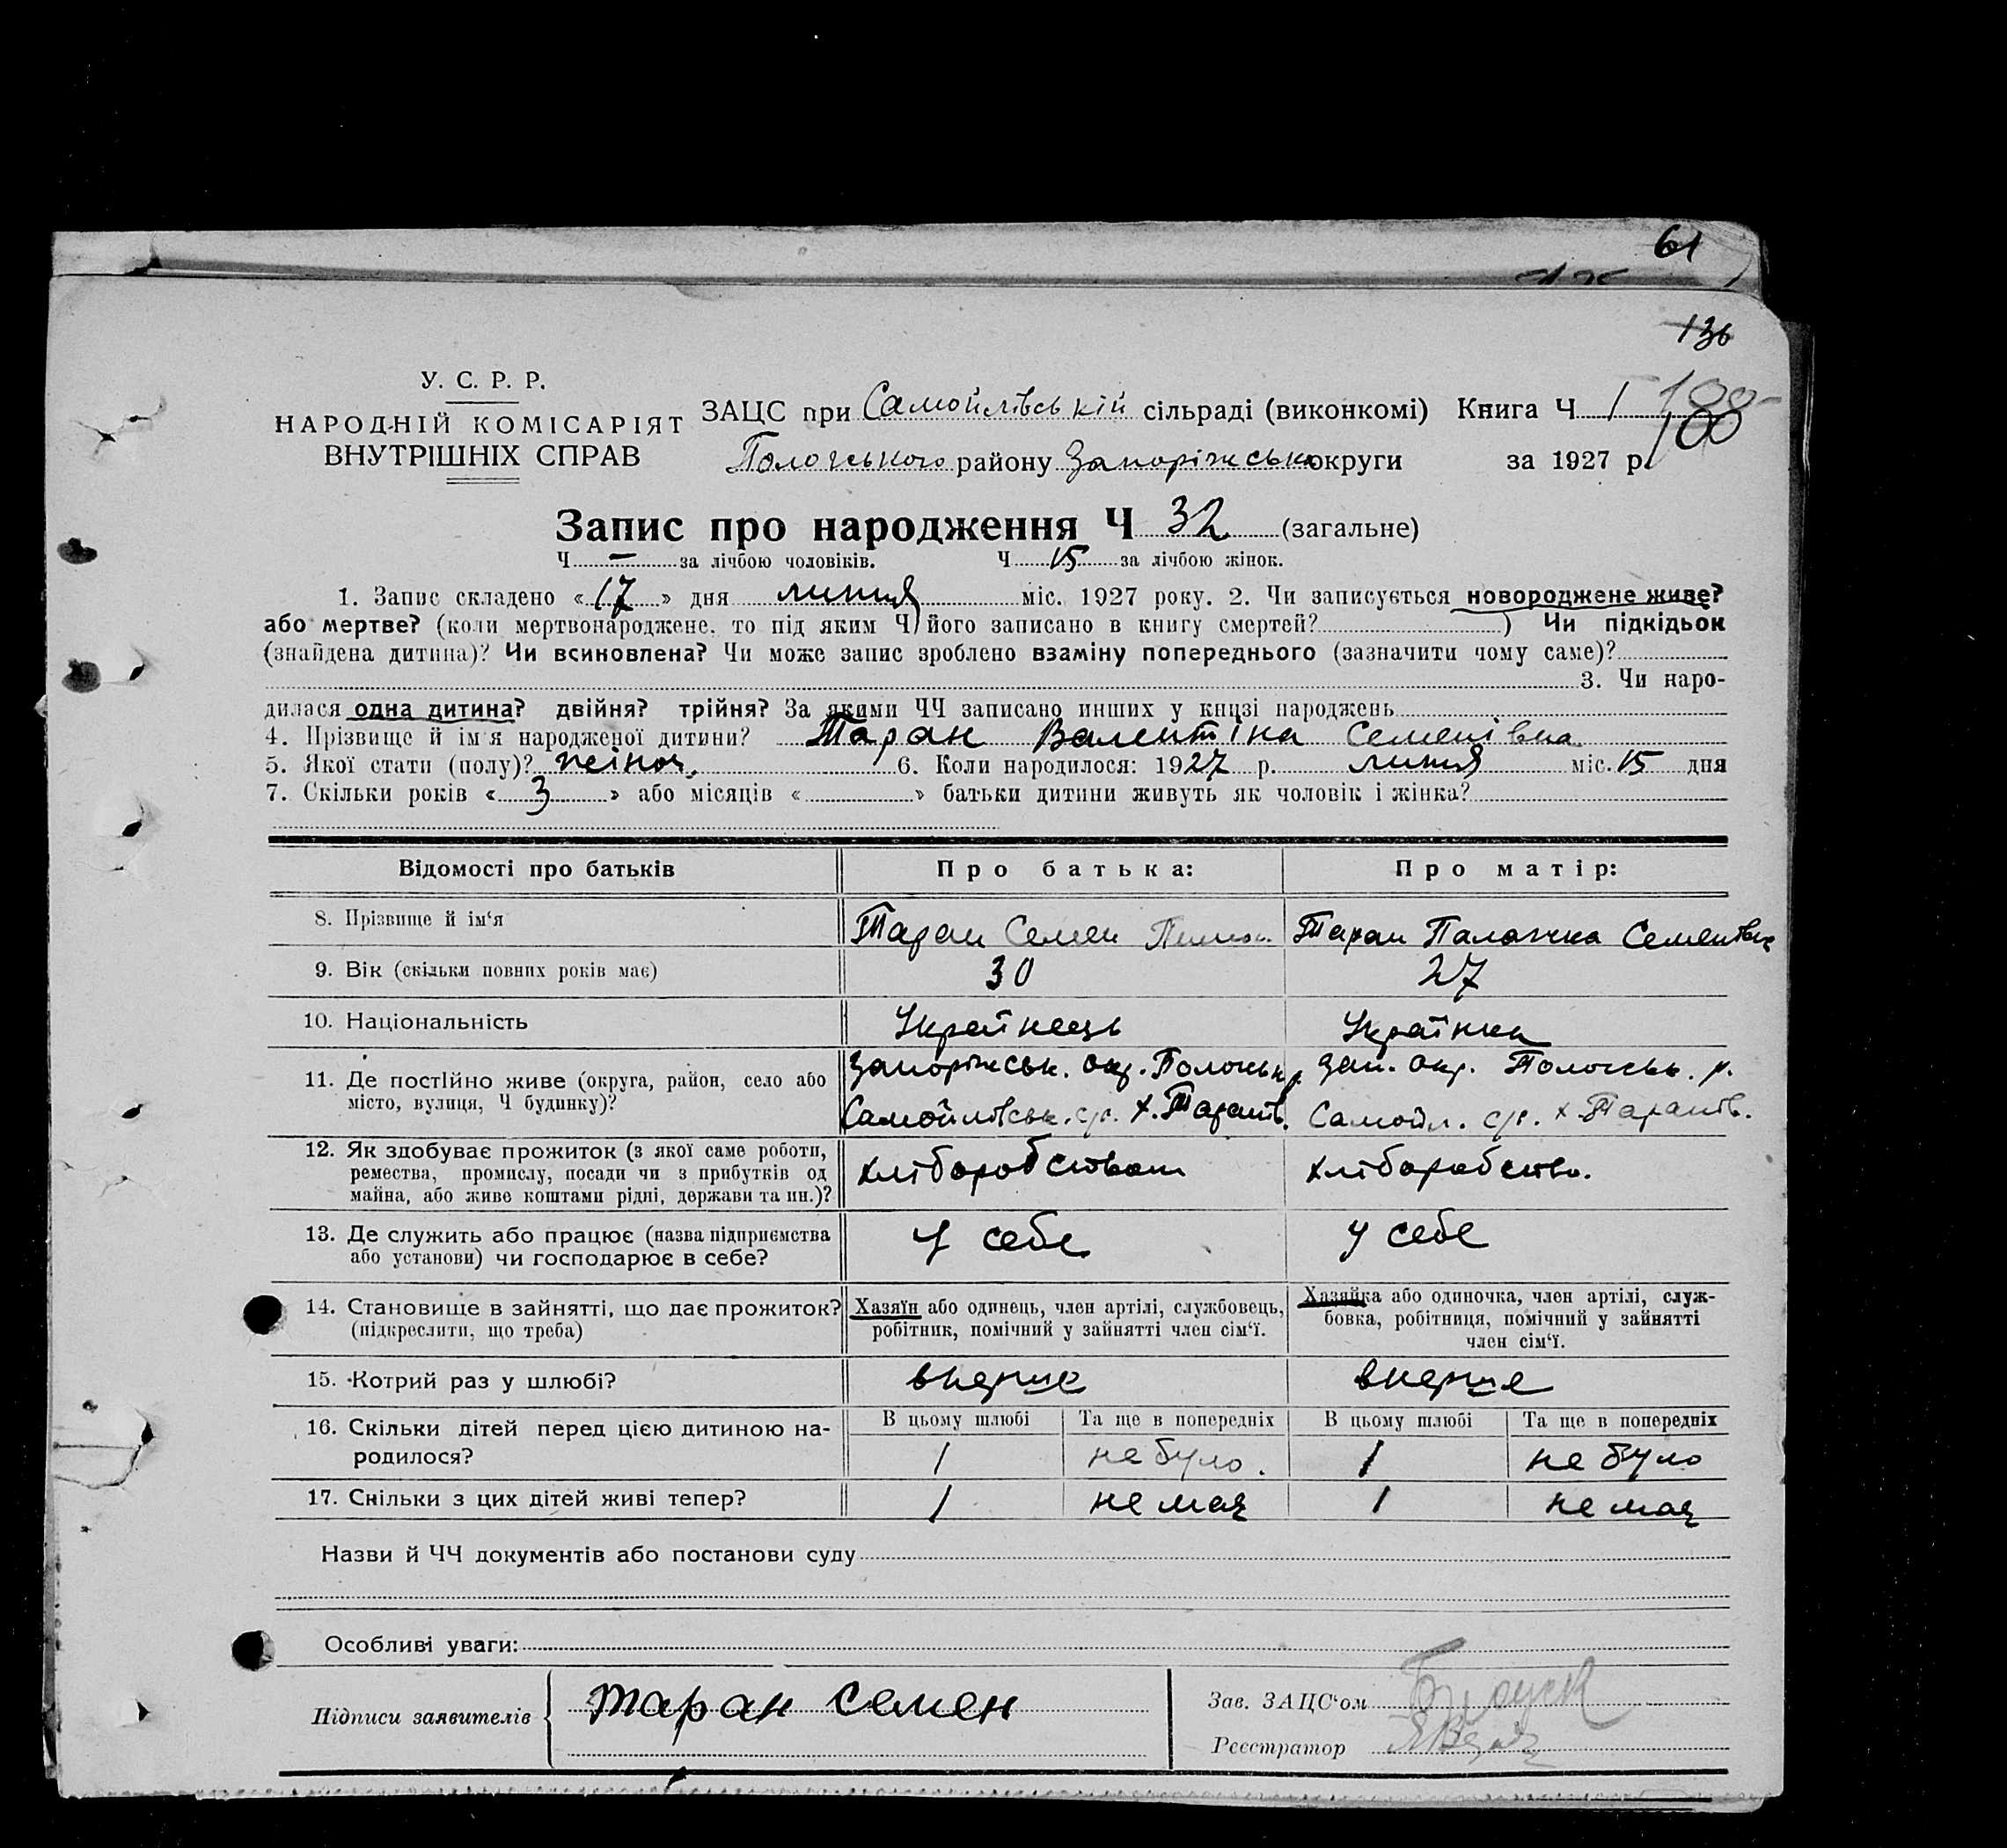 61
136
У. С. Р. Р.
НАРОДНІЙ КОМІСАРІЯТ
ВНУТРІШНІХ СПРАВ
ЗАЦС при Самойлівській сільраді (виконкомі) Книга Ч 1
100
Пологського району Запоріжської округи за 1927 р.
Запис про народження Ч 32 (загальне)
Ч — за лічбою чоловіків. Ч 15 за лічбою жінок.
1. Запис складено «17» дня липня міс. 1927 року. 2. Чи записується новороджене живе?
або мертве? (коли мертвонароджене, то під яким Ч його записано в книгу смертей? ) Чи підкідьок
(знайдена дитина)? Чи всиновлена? Чи може запис зроблено взаміну попереднього (зазначити чому саме)?
3. Чи наро-
дилася одна дитина? двійня? трійня? За якими ЧЧ записано инших у книзі народжень
4. Прізвище й ім'я народженої дитини? Таран Валентіна Семенівна
5. Якої стати (полу)? жіноч. 6. Коли народилося: 1927 р. липня міс. 15 дня
7. Скільки років «3» або місяців « » батьки дитини живуть як чоловік і жінка?
Відомості про батьків Про батька: Про матір:
8. Прізвище й ім'я Таран Семен Таран Палажка Семенівна
9. Вік (скільки повних років має) 30 27
10. Національність Українець Українка
11. Де постійно живе (округа, район, село або місто, вулиця, Ч будинку)?
Запоріжськ. окр. Пологськ р. Самойлівськ. с/р. х. Таранів.
Зап. окр. Пологськ. р. Самойл. с/р. х Таранів.
12. Як здобуває прожиток (з якої саме роботи,
ремества, промислу, посади чи з прибутків од
майна, або живе коштами рідні, держави та ин.)?
хліборобством хліборобство.
13. Де служить або працює (назва підприємства
або установи) чи господарює в себе?
У себе у себе
14. Становище в зайнятті, що дає прожиток?
(підкреслити, що треба)
Хазяїн або одинець, член артілі, службовець,
робітник, помічний у зайнятті член сім'ї.
Хазяйка або одиночка, член артілі, служ-
бовка, робітниця, помічний у зайнятті
член сім'ї.
15. Котрий раз у шлюбі? вперше вперше
16. Скільки дітей перед цією дитиною на-
родилося?
В цьому шлюбі Та ще в попередніх В цьому шлюбі Та ще в попередніх
1 не було. 1 не було
17. Скільки з цих дітей живі тепер? 1 не має 1 не має
Назви й ЧЧ документів або постанови суду
Особливі уваги:
Підписи заявителів таран семен
Зав. ЗАЦС'ом
Реєстратор